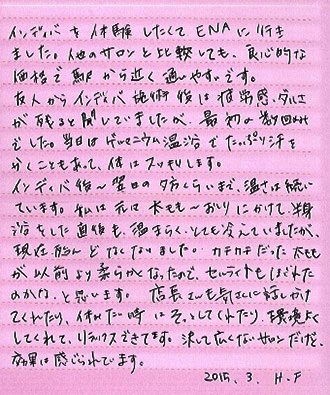 インディバを体験したくてENAに行き
ました。他のサロンと比較しても、良心的な
価格で駅から近く通いやすいです。
友人からインディバ施術後は疲労感、ダルさ
が残ると聞いていましたが、最初の数回のみ
でした。当日はゲルマニウム温浴でたっぷり汗を
かくこともあって、体はスッキリします。
インディバ後〜翌日の夕方くらいまで、温さは続い
ています。私は元々太もも〜おしりにかけて、半身
浴をした直後も、温まらくとても冷えていましたが、
現在殆んどなくなりました。カチカチだった太もも
が以前より柔らかくなったので、セルライトもほぐれた
のかな、と思います。店長さんも気さくに話しかけ
てくれたり、休みたい時はそっとしてくれたり、環境よく
してくれて、リラックスできてます。決して広くないサロンだけど、
効果は感じられてます。
2015. 3. H.F